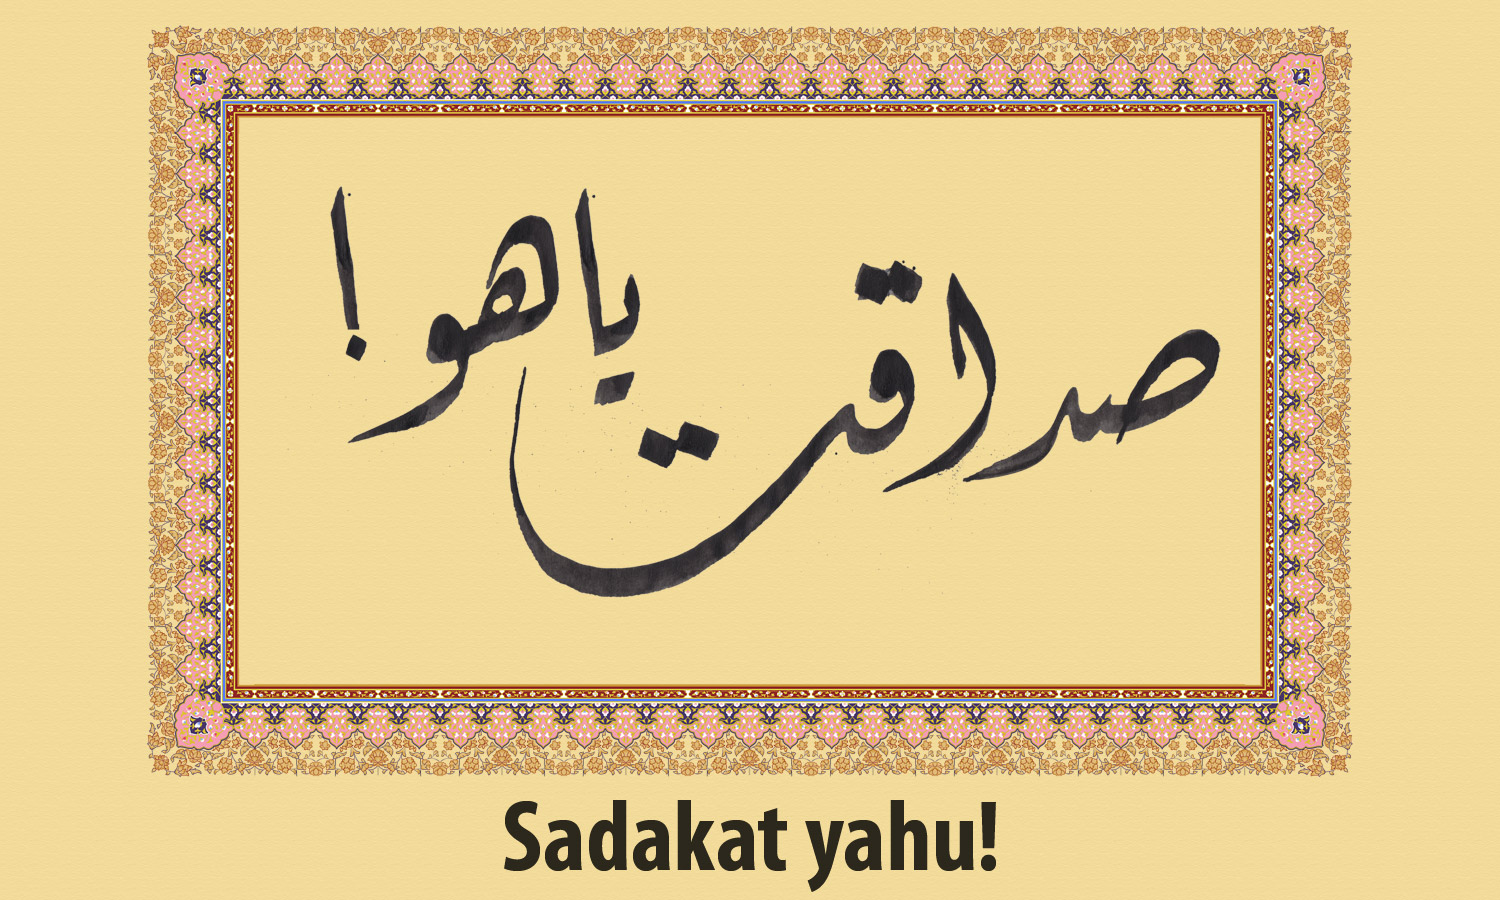 صداقت ياهو!
Sadakat yahu!